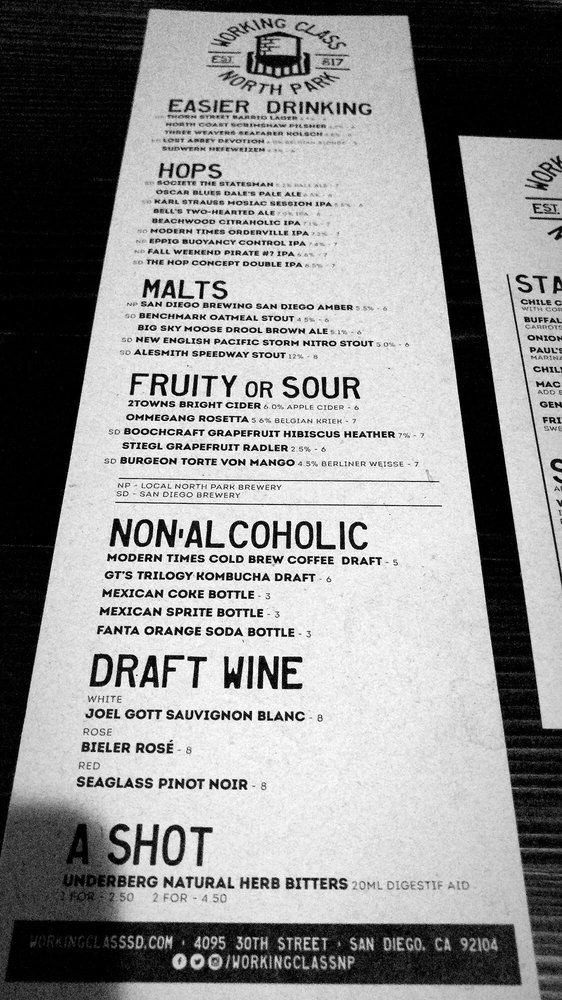 WORKING CLASS
EST. 817
NORTH PARK
EASIER DRINKING
THORN STREET BARRIO LAGER
NORTH COAST SCRIMSHAW PILSNER
THREE WEAVERS SEAFARER KOLSCH
LOST ABBEY DEVOTION BELGIAN BLONDE
SUDWERK HEFEWEIZEN
HOPS
SD SOCIETE THE STATESMAN 5.2% PALE ALE - 7
OSCAR BLUES DALE'S PALE ALE
SD KARL STRAUSS MOSIAC SESSION IPA - 6
BELL'S TWO-HEARTED ALE 7.0% IPA - 6
BEACHWOOD CITRAHOLIC IPA 7.1% - 7
SD MODERN TIMES ORDERVILLE IPA 7.2% - 7
NP EPPIG BUOYANCY CONTROL IPA 7.4% - 7
NP FALL WEEKEND PIRATE #? IPA 6.6% - 7
SD THE HOP CONCEPT DOUBLE IPA 8.5% - 7
MALTS
NP SAN DIEGO BREWING SAN DIEGO AMBER 5.5% - 6
SD BENCHMARK OATMEAL STOUT 4.5% - 6
BIG SKY MOOSE DROOL BROWN ALE 5.1% - 6
SD NEW ENGLISH PACIFIC STORM NITRO STOUT 5.0% - 6
SD ALESMITH SPEEDWAY STOUT 12% - 8
FRUITY OR SOUR
2TOWNS BRIGHT CIDER 6.0% APPLE CIDER - 6
OMMEGANG ROSETTA 5.6% BELGIAN KRIEK - 7
SD BOOCHCRAFT GRAPEFRUIT HIBISCUS HEATHER 7% - 7
STIEGL GRAPEFRUIT RADLER 2.5% - 6
SD BURGEON TORTE VON MANGO 4.5% BERLINER WEISSE - 7
NP - LOCAL NORTH PARK BREWERY
SD - SAN DIEGO BREWERY
NON-ALCOHOLIC
MODERN TIMES COLD BREW COFFEE DRAFT - 5
GT'S TRILOGY KOMBUCHA DRAFT - 6
MEXICAN COKE BOTTLE - 3
MEXICAN SPRITE BOTTLE - 3
FANTA ORANGE SODA BOTTLE - 3
DRAFT WINE
WHITE
JOEL GOTT SAUVIGNON BLANC - 8
ROSE
BIELER ROSÉ - 8
RED
SEAGLASS PINOT NOIR - 8
A SHOT
UNDERBERG NATURAL HERB BITTERS 20ML DIGESTIF AID
1 FOR - 2.50 2 FOR - 4.50
WORKINGCLASSSD.COM · 4095 30TH STREET · SAN DIEGO, CA 92104
/WORKINGCLASSNP
WORK
EST.
STA
CHILE C
WITH COR
BUFFAL
CARROTS
ONION
PAUL'S
MARINA
CHILI
MAC
ADD
GEN
FRI
SWE